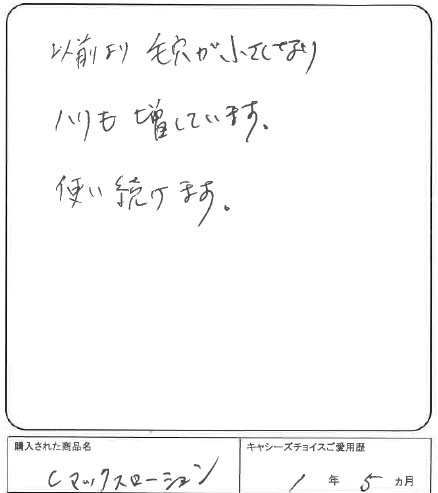 以前より 毛穴が小さくなり
ハリも 増しています。
使い 続けます。
購入された商品名
Cマックスローション
キャシーズチョイスご愛用歴
1 年 5 ヵ月